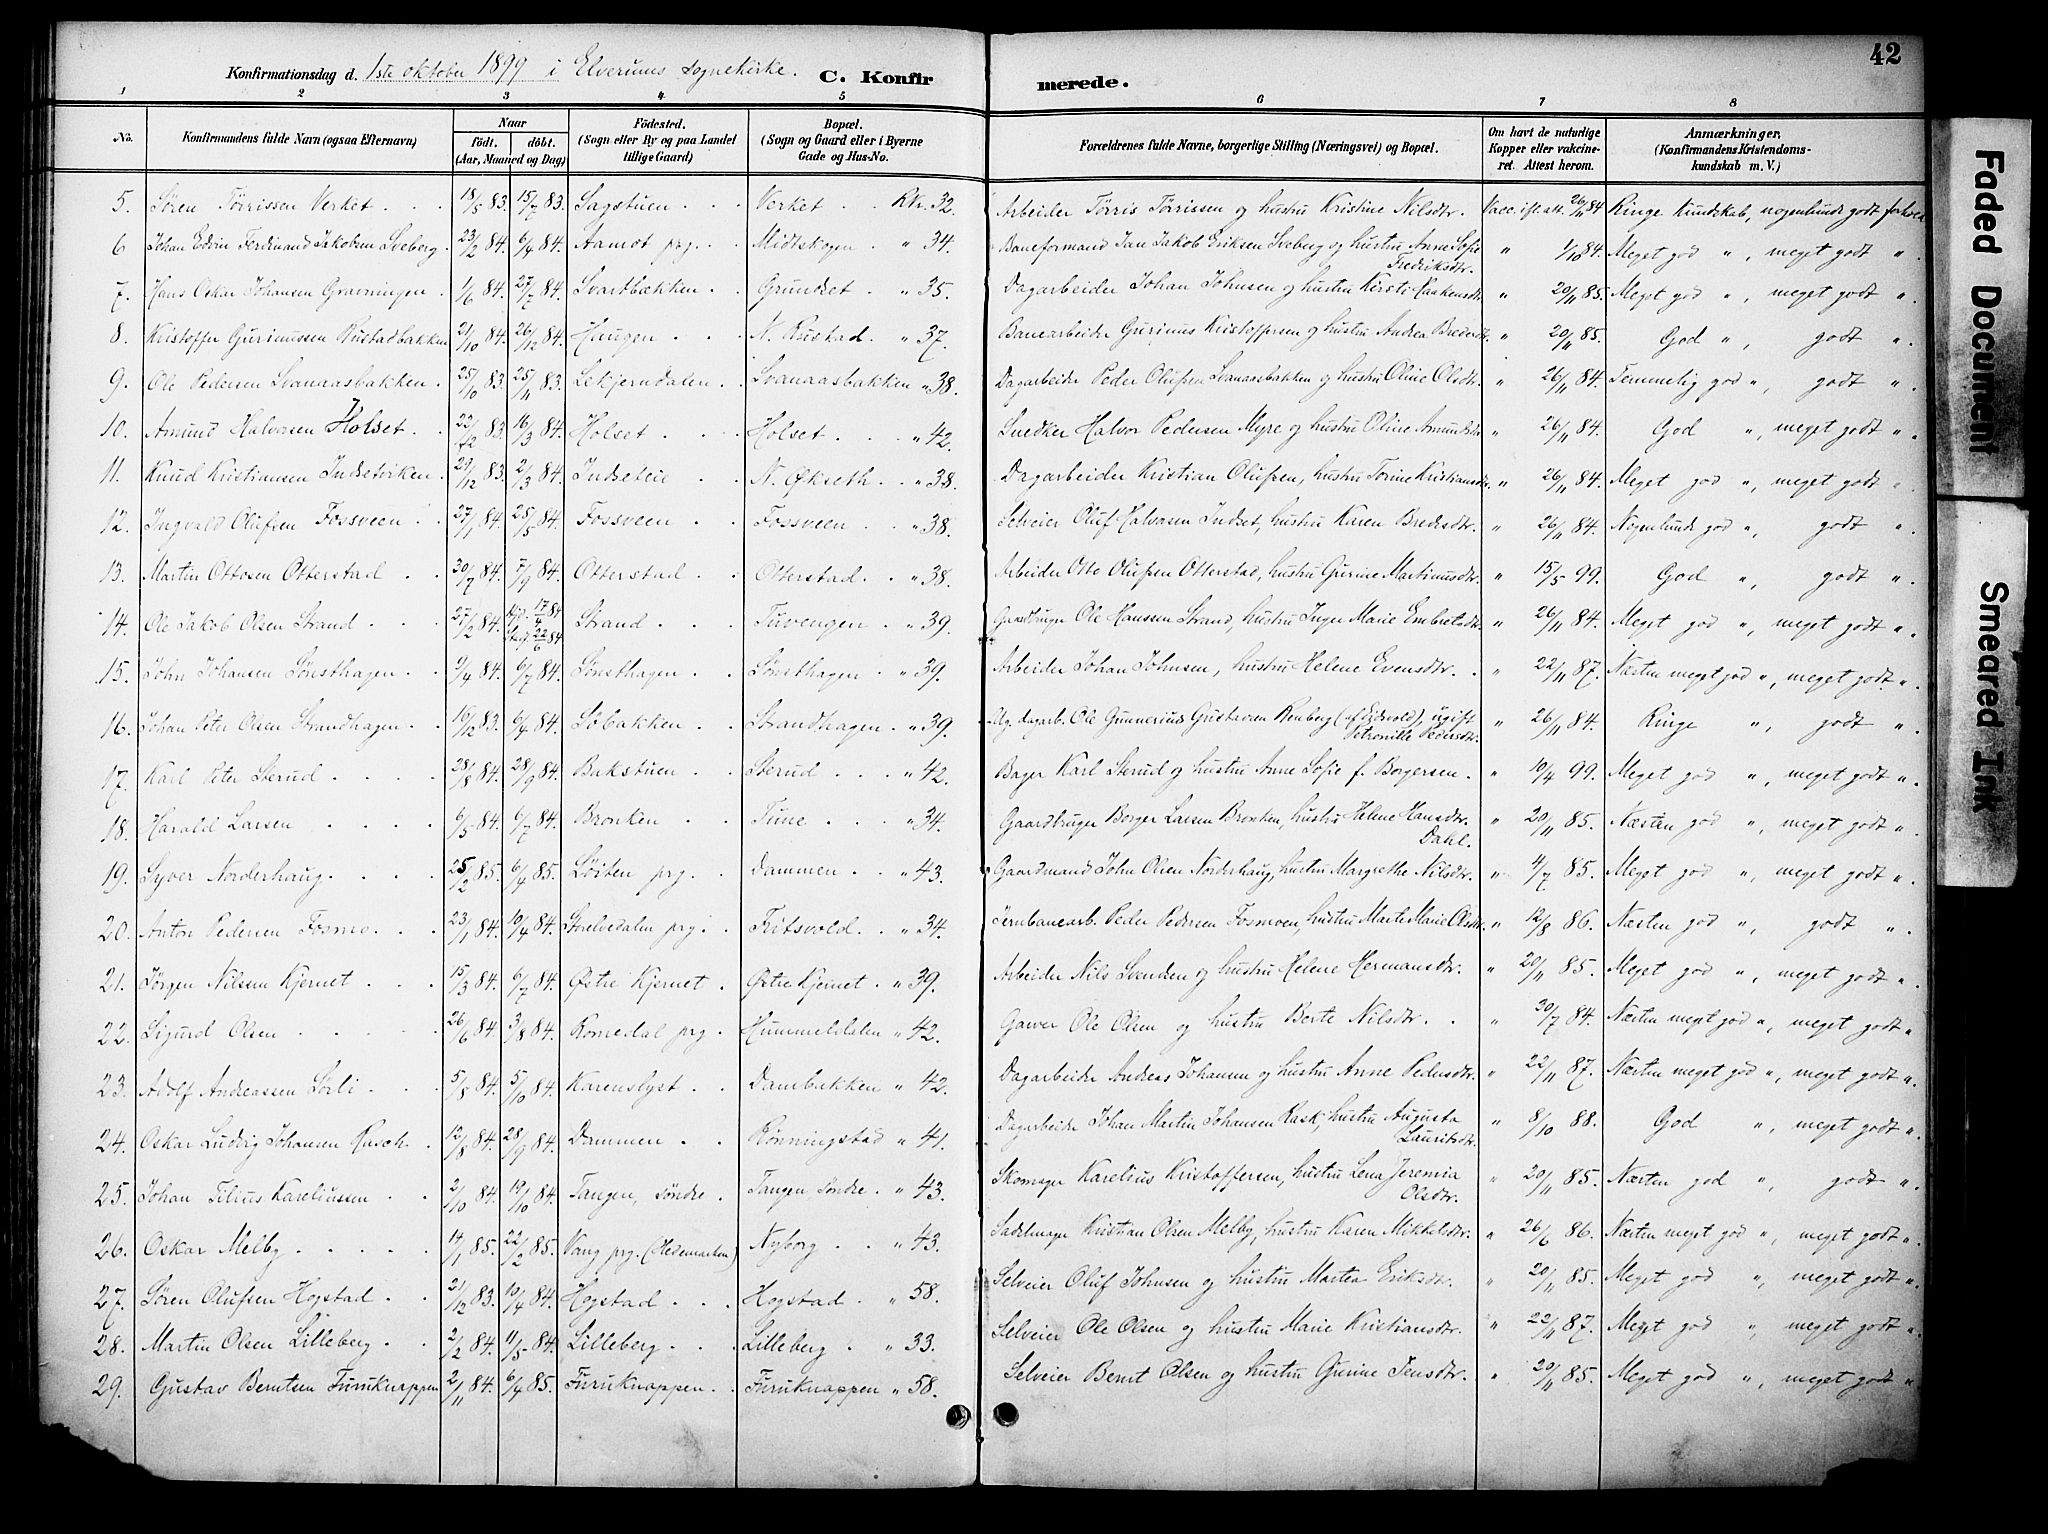 42
Konfirmationsdag d. 1ste oktober 1899 i Elverums sognekirke. C. Konfir merede.
1 2 3 4 5 6 7 8
No. Konfirmandens fulde Navn (ogsaa Efternavn) Naar født. døbt. (Aar, Maaned og Dag) Fødested. (Sogn eller By og paa Landet tillige Gaard) Bopæl. (Sogn og Gaard eller i Byerne Gade og Hus-No. Forældrenes fulde Navne, borgerlige Stilling (Næringsvei) og Bopæl. Om havt de naturlige Kopper eller vakcineret. Attest herom. Anmærkninger. (Konfirmandens Kristendomskundskab m. V.)
5. Søren Tørrissen Verket . . . 18/5 83. 15/7 83. Sagstuen . . Verket . . Rkr. 32. Arbeider Tørris Tørrissen og hustru Kristine Nilsdtr. Vacc. ifl. att. 26/11 84 Ringe Kundskab, nogenlunde godt forhold
6 Johan Edvin Ferdinand Jakobsen Sveberg. 23/2 84. 6/4 84. Aamot prg. . . Midtskogen . " 34. Baneformand Jan Jakob Eriksen Sveberg og hustru Anne Sofie Fredriksdtr. " 1/10 84. Meget god " , meget godt " .
7. Hans Oskar Johansen Gravningen . 1/6 84. 27/7 84. Svartbækken . Grundset . " 35. Dagarbeider Johan Johnsen og hustru Kirsti Haakensdtr " 20/11 85. Meget god " , meget godt " .
8. Kristoffer Gurimussen Rustadbakken 21/10 84. 26/12 84. Haugen . . . N. Rustad. . " 37. Banearbeider Gurinus Kristoffersen og hustru Andrea Bredesdtr. " 20/11 85. God " , godt " .
9. Ole Pedersen Svanaasbakken. 25/10 83. 25/11 83. Lekjerndalen . Svanaasbakken " 38. Dagarbeider Peder Olufsen Svanaasbakken og hustru Oline Olsdtr. " 26/11 84. Temmelig god " , godt " .
10. Amund Halvorsen Holset . 22/12 83. 16/3 84. Holset . . . Holset . . . " 42. Snedker Halvor Pedersen Myre og hustru Oline Amundsdtr " 26/11 84. God " , meget godt " .
11. Knud Kristiansen Indsetviken 29/12 83. 2/3 84. Indseteie . . N. Økseth . . " 38. Dagarbeider Kristian Olufsen, hustru Torine Kristiansdtr. " 26/11 84. Meget god " , meget godt " .
12. Ingvald Olufsen Fossveen . 27/1 84. 25/5 84. Fossveen . . Fossveen . " 38. Selveier Oluf Halvorsen Indset, hustru Karen Bredesdtr. " 26/11 84. Nogenlunde god " , godt " .
13. Martin Ottosen Otterstad . . 30/7 84. 7/9 84. Otterstad . . Otterstad . " 38. Arbeider Otto Olufsen Otterstad, hustru Gurine Martinusdtr. " 15/5 99. God " , godt " .
14. Ole Jakob Olsen Strand . . 27/2 84. Hjd. 17/4 84 Stad. 22/6 84 Strand . . Tuvengen . " 39. Gaardbruger Ole Hanssen Strand, hustru Inger Marie Embretsdtr. " 26/11 84. Meget god " , meget godt " .
15. John Johansen Sønsthagen . . 9/4 84. 6/7 84. Sønsthagen . . Sønsthagen . " 39. Arbeider Johan Johnsen, hustru Helene Evensdtr. . " 22/11 87. Næsten meget god " , meget godt " .
16. Johan Peter Olsen Strandhagen . 16/12 83. 6/4 84. Søbakken . . Strandhagen . " 39. Ug. dagarb. Ole Gunnerius Gustavsen Renberg (af Eidsvold), ugift Petronille Pedersdtr. " 26/11 84. Ringe " , godt " .
17. Karl Peter Sterud . . . . 28/8 84. 28/9 84. Bakstuen . . Sterud . . . " 42. Bager Karl Sterud og hustru Anne Sofie f. Borgersen . " 10/4 99. Meget god " , meget godt " .
18. Harald Larsen . . . . 6/5 84. 6/7 84. Bronken . . Tune . . . " 34. Gaardbruger Borger Larsen Bronken, hustru Helene Hansdtr. Dahl. " 20/11 85. Næsten god " , meget godt " .
19. Syver Norderhaug . . . . 25/2 85. 6/4 85. Løiten prg . . Dammen . . " 43. Gaardmand John Olsen Norderhaug, hustru Margrethe Nilsdtr. " 4/7 85. Meget god " , meget godt " .
20. Anton Pedersen Fosmo . . . 23/1 84. 10/4 84. Storelvedalen prg. . Fritsvold . . " 34. Jernbanearb. Peder Pedersen Fosmoen, hustru Marte Marie Olsdtr. " 12/8 86. Næsten god " , godt " .
21. Jørgen Nilsen Kjernet . . . 15/3 84. 6/7 84. Østre Kjernet . Østre Kjernet . " 39. Arbeider Nils Svendsen og hustru Helene Hermansdtr. " 20/11 85. Meget god " , meget godt " .
22. Sigurd Olsen . . . . . 26/6 84. 3/8 84. Romedal prg . Hummeldalen " 42. Garver Ole Olsen og hustru Berte Nilsdtr. . " 30/7 84. Næsten meget god " , meget godt " .
23. Adolf Andreassen Sørli . . 5/8 84. 5/10 84. Karenslyst . . Dambakken " 42. Dagarbeider Andreas Johansen og hustru Anne Pedersdtr. " 22/11 87. Næsten meget god " , meget godt " .
24. Oskar Ludvig Johansen Rasch . 12/8 84. 28/9 84. Dammen . . Rønningstad " 41. Dagarbeider Johan Martin Johansen Rask, hustru Augusta Lauritsdtr. " 8/10 88. God " , meget godt " .
25. Johan Tilius Kareliussen . . 2/10 84. 19/10 84. Tangen, søndre . Tangen søndre . " 43. Skomager Karelius Kristoffersen, hustru Lena Jeremia Olsdtr. " 20/11 85. Næsten god " , godt " .
26. Oskar Melby . . . . . 14/1 85. 22/2 85. Vang prg. (Hedemarken) Nyborg . . " 43. Sadelmager Kristian Olsen Melby, hustru Karen Mikkelsdtr. " 26/6 86. Næsten meget god " , meget godt " .
27. Søren Olufsen Hogstad . . 21/12 83. 10/4 84. Hogstad . . . Hogstad . " 58. Selveier Oluf Johnsen og hustru Martea Eriksdtr. " 20/11 85. Meget god " , meget godt " .
28. Martin Olsen Lilleberg . . 2/2 84. 11/5 84. Lilleberg . . . Lilleberg . " 33. Selveier Ole Olsen og hustru Marie Kristiansdtr. " 22/11 87. Meget god " , meget godt " .
29. Gustav Berntsen Furuknappen 2/11 84. 6/4 85. Furuknappen . Furuknappen " 58. Selveier Bernt Olsen og hustru Gunine Jensdtr. " 20/11 85. Meget god " , meget godt "
Faded Document
Smeared Ink